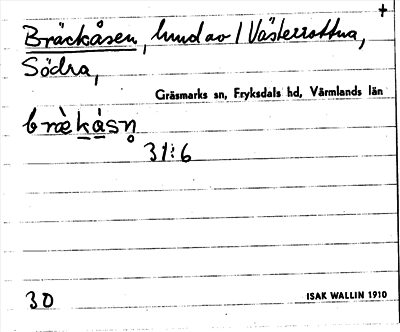 +
Bräckåsen, hmd av 1 Västerrottna,
Södra,
Gräsmarks sn, Fryksdals hd, Värmlands län
brækåsn̥
31:6
30
ISAK WALLIN 1910